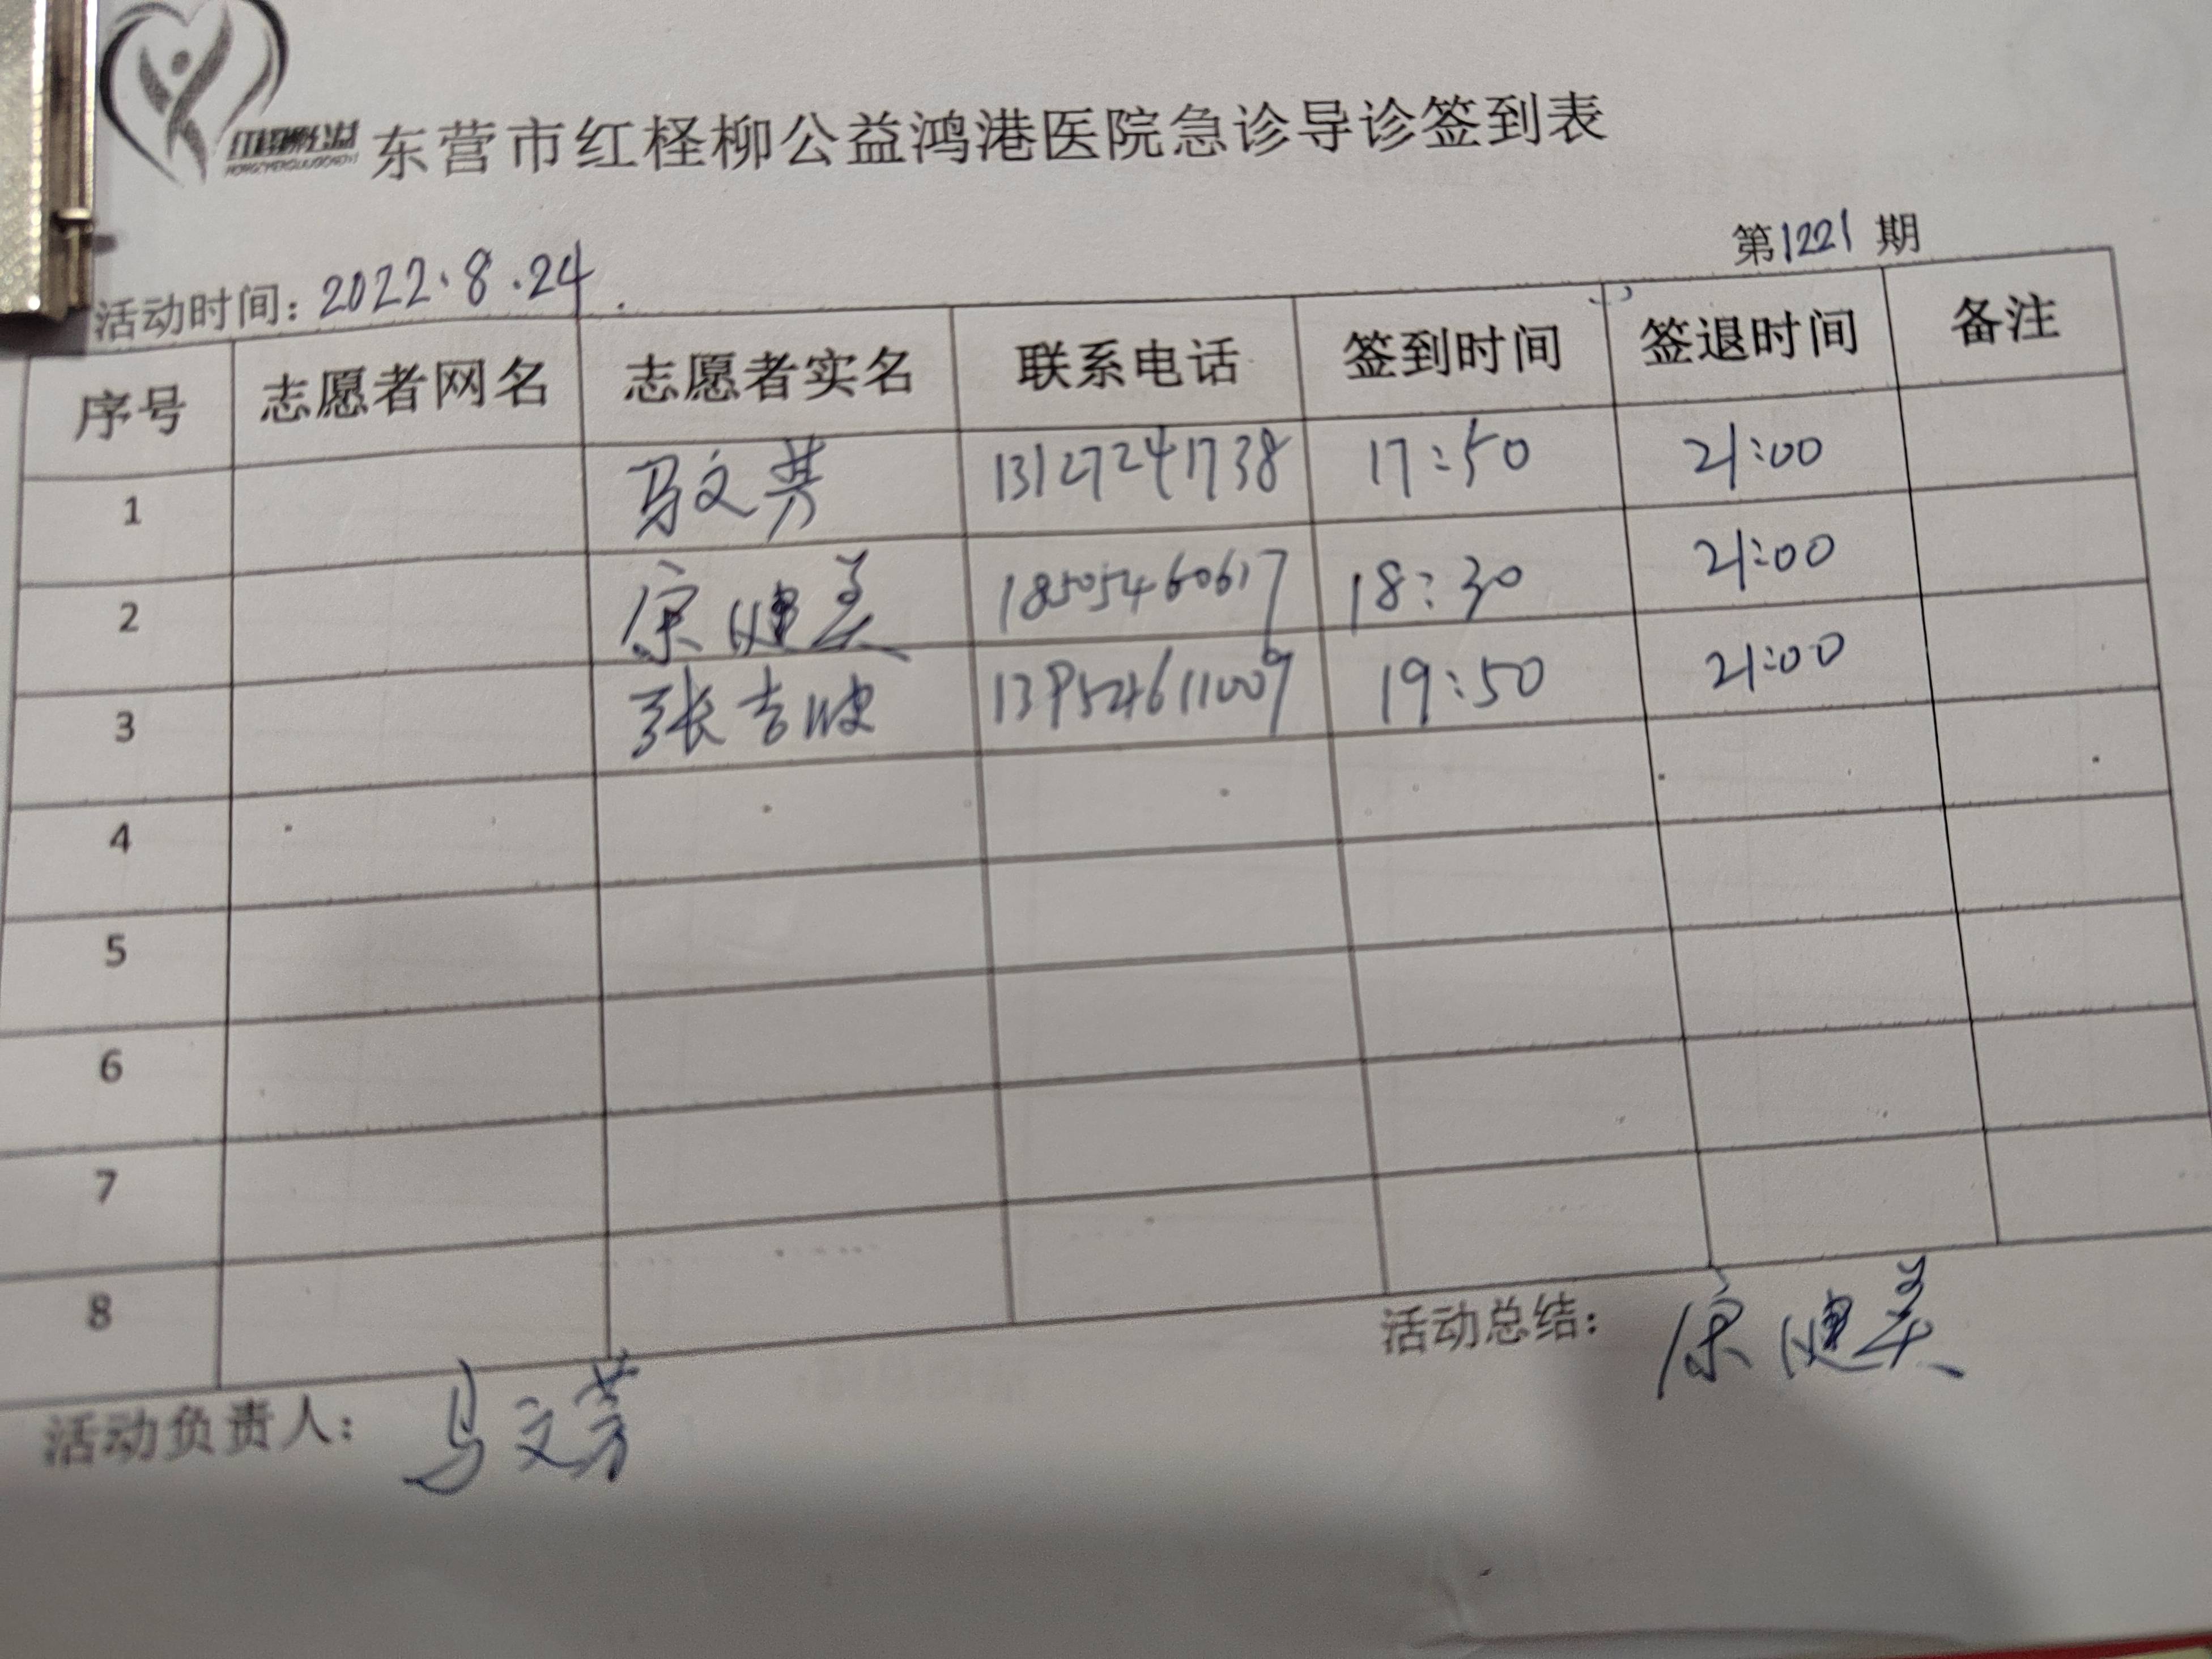 红柽柳公益
东营市红柽柳公益鸿港医院急诊导诊签到表
第1221期
活动时间：2022.8.24.
序号 志愿者网名 志愿者实名 联系电话 签到时间 签退时间 备注
1 马文芳 13127241738 17:50 21:00
2 宋健美 18505460617 18:30 21:00
3 张吉波 13954611009 19:50 21:00
4
5
6
7
8
活动负责人：马文芳
活动总结：宋健美